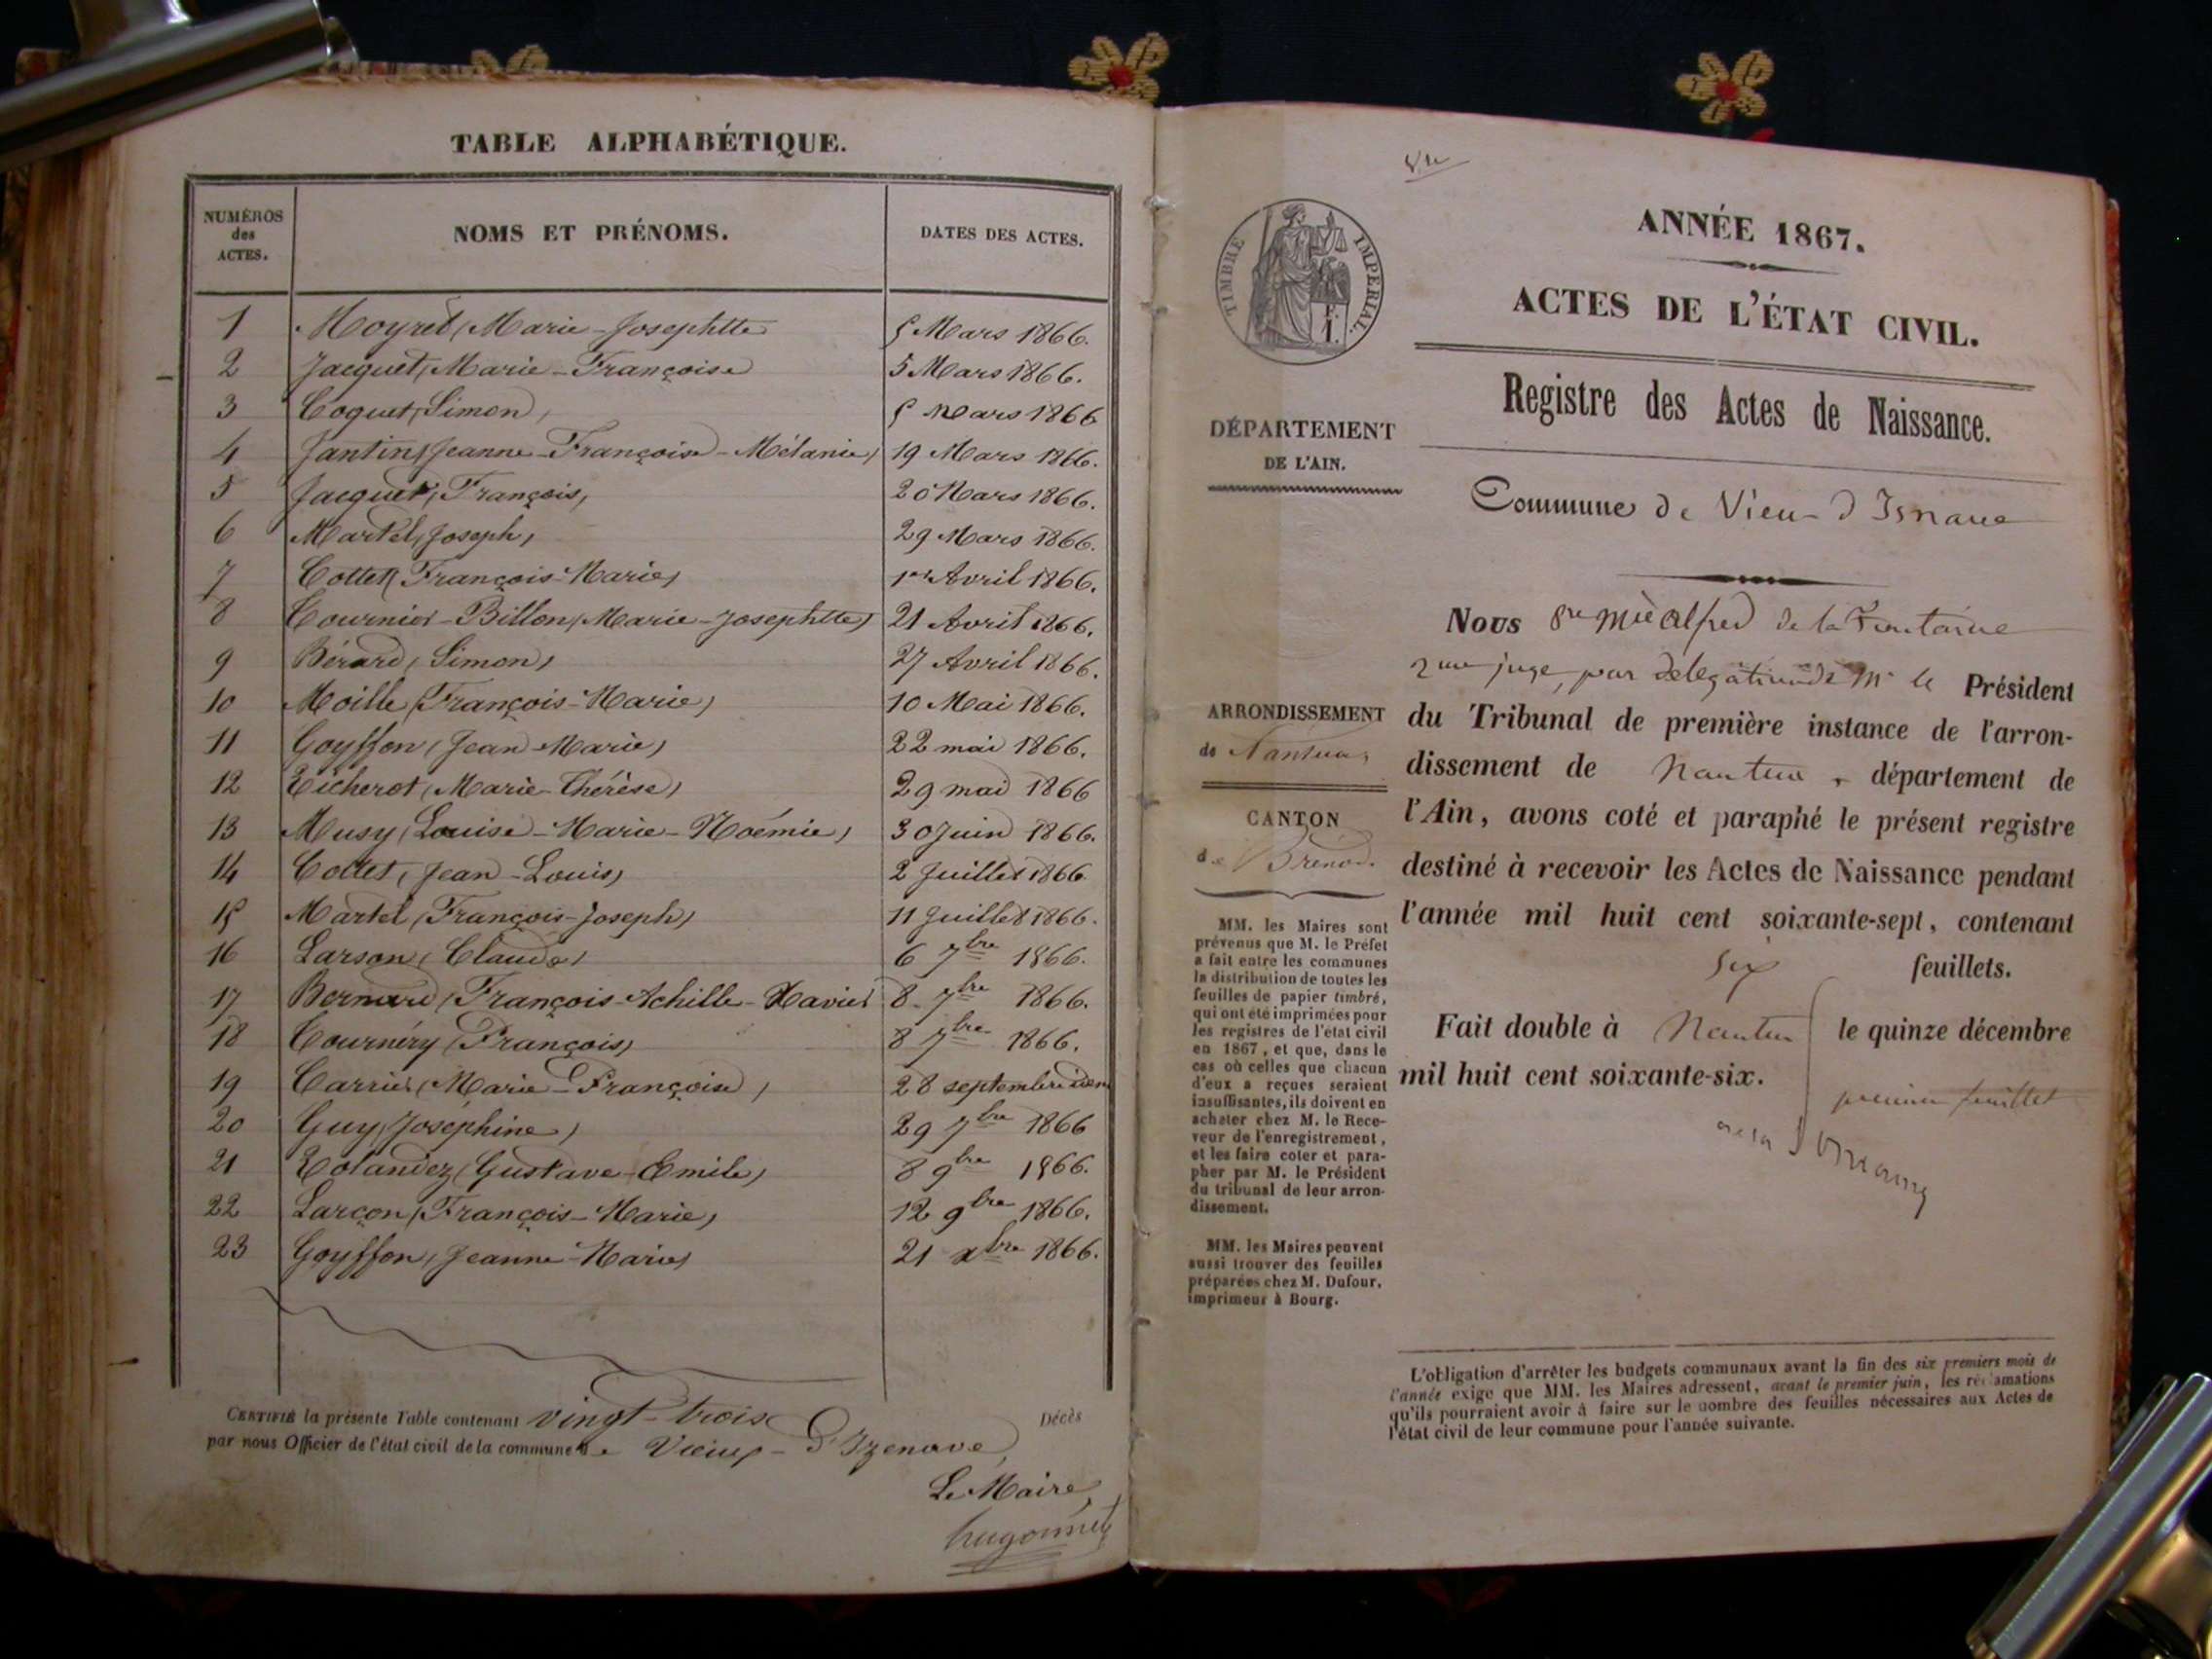 TABLE ALPHABÉTIQUE.
NUMÉROS des ACTES. NOMS ET PRÉNOMS. DATES DES ACTES.
1 Moyret, Marie-Josephtte 5 Mars 1866.
2 Jacquet, Marie-Françoise 5 Mars 1866.
3 Coquet, Simon, 5 Mars 1866
4 Jantin, Jeanne-Françoise-Mélanie, 19 Mars 1866.
5 Jacquet, François, 20 Mars 1866.
6 Martel, Joseph, 29 Mars 1866.
7 Cottet, François-Marie, 1er Avril 1866.
8 Cournier-Billon, Marie-Josephtte, 21 Avril 1866.
9 Bérard, Simon, 27 Avril 1866.
10 Moille, François-Marie, 10 Mai 1866.
11 Goyffon, Jean-Marie, 22 mai 1866.
12 Marie-Thérèse, 29 mai 1866
13 Musy, Louise-Marie-Noémie, 30 Juin 1866.
14 Cottet, Jean-Louis, 2 Juillet 1866
15 Martel, François-Joseph, 11 Juillet 1866.
16 Larson, Claude, 6 7bre 1866.
17 Bernard, François-Achille-Xavier 8 7bre 1866.
18 Cournéry, François, 8 7bre 1866.
19 Carrier, Marie-Françoise, 28 septembre idem
20 Guy, Joséphine, 29 7bre 1866
21 Gustave-Emile, 8 9bre 1866.
22 Larçon, François-Marie, 12 9bre 1866.
23 Goyffon, Jeanne-Marie, 21 xbre 1866.
CERTIFIÉ la présente Table contenant vingt-trois Décès
par nous Officier de l'état civil de la commune de Vieux-d'Izenave,
Le Maire,
hugonnet
TIMBRE IMPÉRIAL.
1.
DÉPARTEMENT
DE L'AIN.
ARRONDISSEMENT
de Nantua,
CANTON
de Brénod.
MM. les Maires sont
prévenus que M. le Préfet
a fait entre les communes
la distribution de toutes les
feuilles de papier timbré,
qui ont été imprimées pour
les registres de l'état civil
en 1867, et que, dans le
cas où celles que chacun
d'eux a reçues seraient
insuffisantes, ils doivent en
acheter chez M. le Rece-
veur de l'enregistrement,
et les faire coter et para-
pher par M. le Président
du tribunal de leur arron-
dissement.
MM. les Maires peuvent
aussi trouver des feuilles
préparées chez M. Dufour,
imprimeur à Bourg.
ANNÉE 1867.
ACTES DE L'ÉTAT CIVIL.
Registre des Actes de Naissance.
Commune de Vieu d'Isnave
Nous Alfred de la Fontaine
juge, par délégation de Mr le Président
du Tribunal de première instance de l'arron-
dissement de Nantua, département de
l'Ain, avons coté et paraphé le présent registre
destiné à recevoir les Actes de Naissance pendant
l'année mil huit cent soixante-sept, contenant
six feuillets.
Fait double à Nantua le quinze décembre
mil huit cent soixante-six.
premier feuillet
L'obligation d'arrêter les budgets communaux avant la fin des six premiers mois de
l'année exige que MM. les Maires adressent, avant le premier juin, les réclamations
qu'ils pourraient avoir à faire sur le nombre des feuilles nécessaires aux Actes de
l'état civil de leur commune pour l'année suivante.